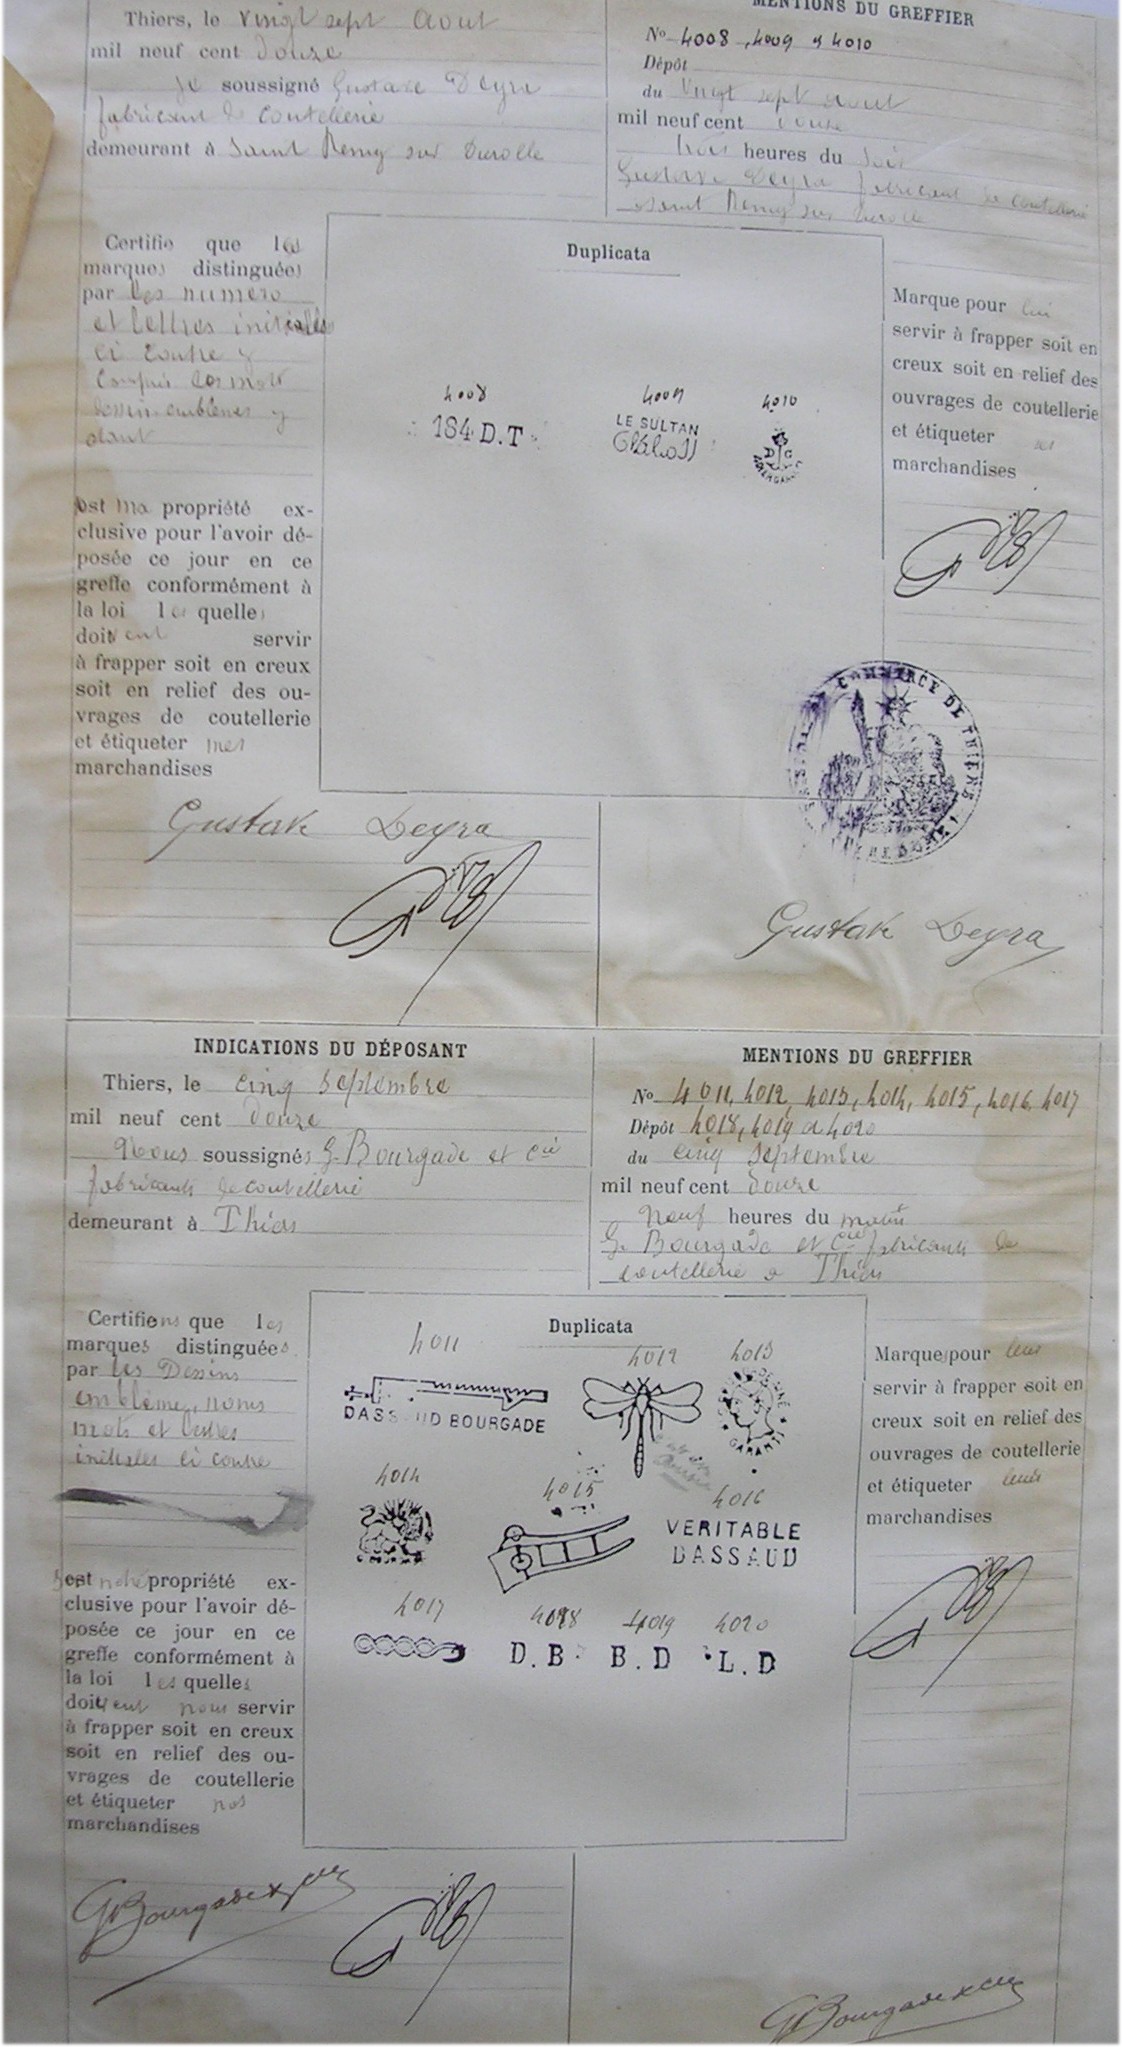 Thiers, le vingt sept aout
mil neuf cent douze
je soussigné Gustave Deyra
fabricant de coutellerie
demeurant à Saint Remy sur Durolle
MENTIONS DU GREFFIER
No 4008, 4009 et 4010
Dépôt
du vingt sept aout
mil neuf cent douze
trois heures du soir
Gustave Deyra fabricant de coutellerie
Saint Remy sur Durolle
Certifie que les
marques distinguées
par les numero
et lettres initiales
ci contre y
compris les mots
dessin emblemes y
étant
est ma propriété ex-
clusive pour l'avoir dé-
posée ce jour en ce
greffe conformément à
la loi les quelles
doivent servir
à frapper soit en creux
soit en relief des ou-
vrages de coutellerie
et étiqueter mes
marchandises
Duplicata
4008 4009 4010
184 D.T
LE SULTAN
D C
Marque pour lui
servir à frapper soit en
creux soit en relief des
ouvrages de coutellerie
et étiqueter ses
marchandises
COMMERCE DE THIERS
Gustave Deyra
Gustave Deyra
INDICATIONS DU DÉPOSANT
Thiers, le cinq septembre
mil neuf cent douze
Nous soussignés G. Bourgade et Cie
fabricants de coutellerie
demeurant à Thiers
MENTIONS DU GREFFIER
No 4011, 4012, 4013, 4014, 4015, 4016, 4017
Dépôt 4018, 4019 et 4020
du cinq septembre
mil neuf cent douze
neuf heures du matin
G. Bourgade et Cie fabricants de
coutellerie à Thiers
Certifiens que les
marques distinguées
par les Dessins
emblème, noms
mots et lettres
initiales ci contre
est notre propriété ex-
clusive pour l'avoir dé-
posée ce jour en ce
greffe conformément à
la loi les quelles
doivent nous servir
à frapper soit en creux
soit en relief des ou-
vrages de coutellerie
et étiqueter nos
marchandises
Duplicata
4011 4012 4013
DASSAUD BOURGADE
GARANTI
4014 4015 4016
VERITABLE
DASSAUD
4017 4018 4019 4020
D.B B.D L.D
Marque pour leur
servir à frapper soit en
creux soit en relief des
ouvrages de coutellerie
et étiqueter leurs
marchandises
G Bourgade & Cie
G Bourgade & Cie